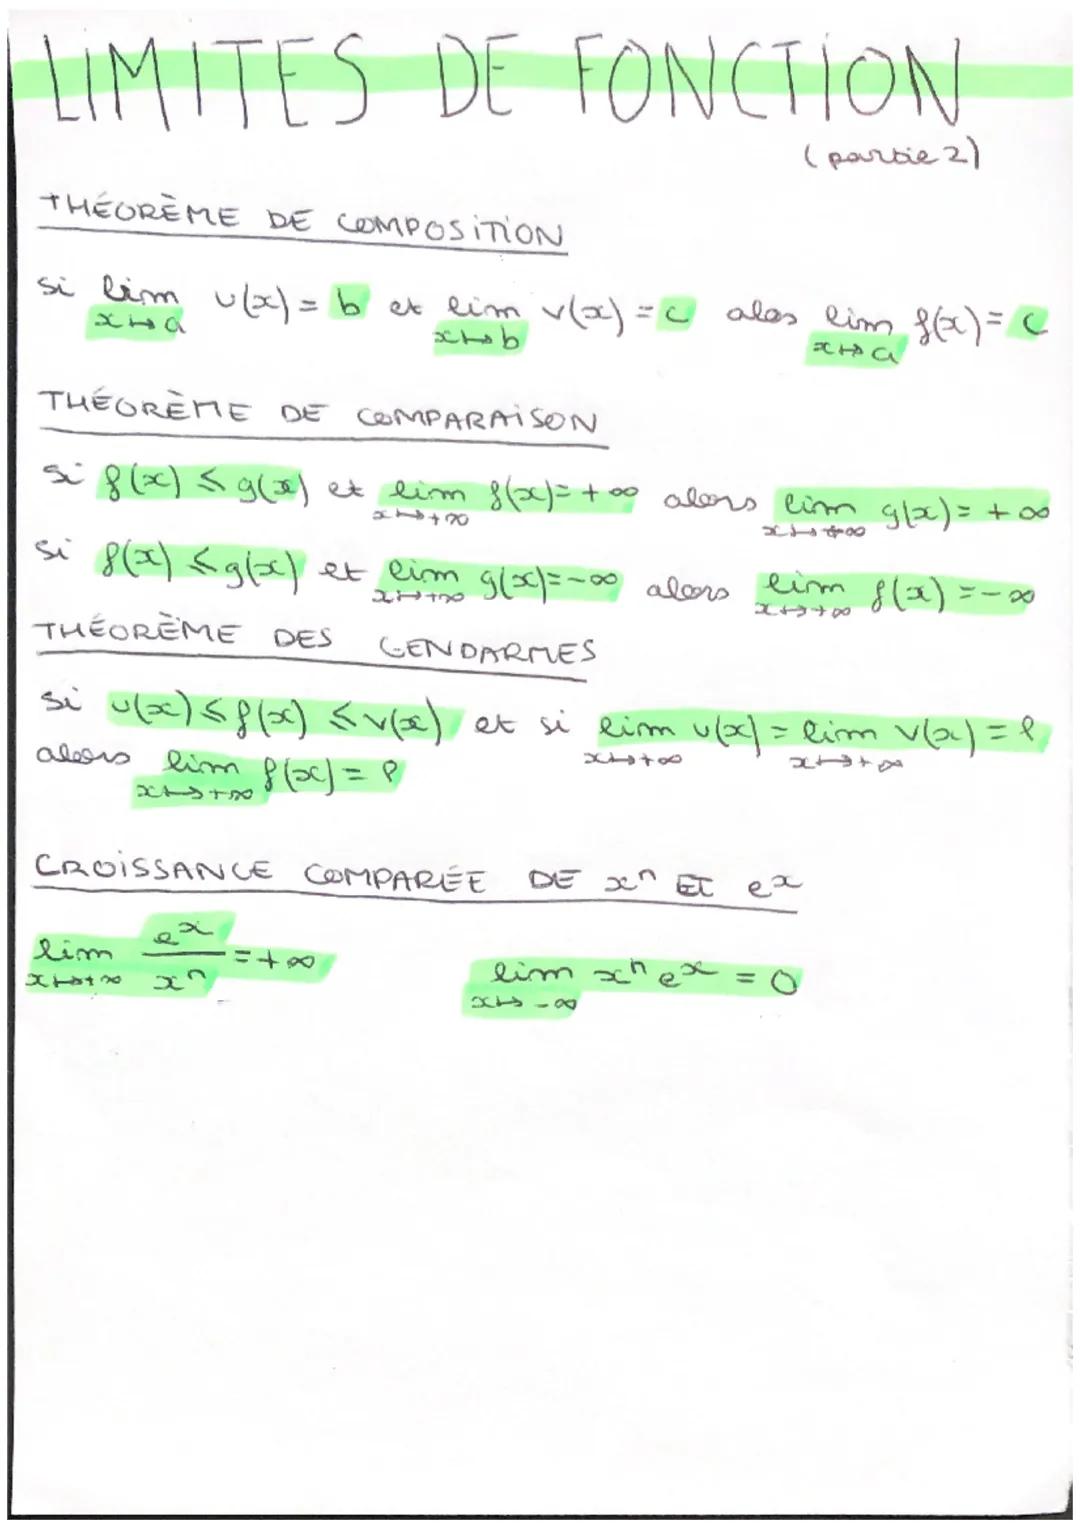 LIMITES DE FONCTION
(partie 2)
THÉORÈME DE COMPOSITION
si lim u(x) = b et lim v(x) = c alos lim f(x) = c
x↦a x↦b x↦a
THÉORÈME DE COMPARAISON
si f(x) ≤ g(x) et lim f(x) = +∞ alors lim g(x) = +∞
x↦+∞ x↦+∞
si f(x) ≤ g(x) et lim g(x) = -∞ alors lim f(x) = -∞
x↦+∞ x↦+∞
THÉORÈME DES GENDARMES
si u(x) ≤ f(x) ≤ v(x) et si lim u(x) = lim v(x) = l
x↦+∞ x↦+∞
alors lim f(x) = l
x↦+∞
CROISSANCE COMPARÉE DE xⁿ ET eˣ
lim eˣ/xⁿ = +∞ lim xⁿ eˣ = 0
x↦+∞ x↦-∞